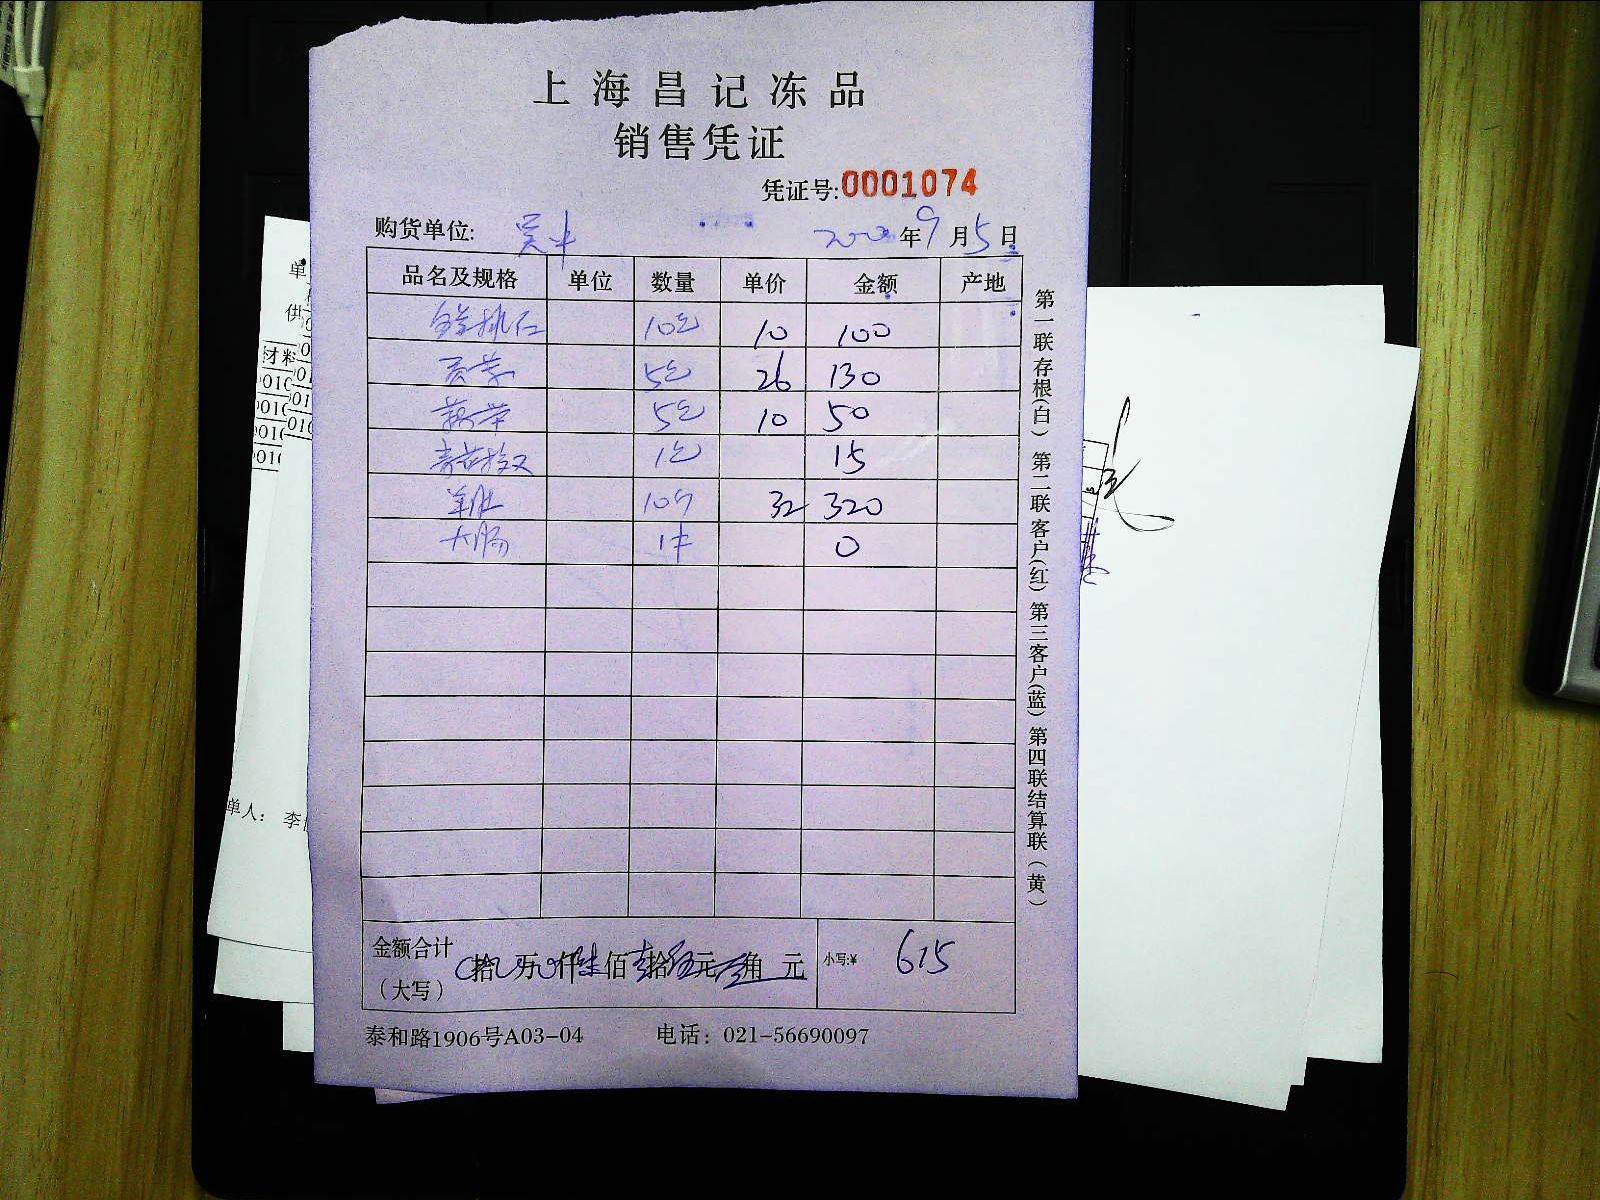 上海昌记冻品
销售凭证
凭证号:0001074
购货单位: 吴中 年9月5日
品名及规格 单位 数量 单价 金额 产地
10包 10 100
贡菜 5包 26 130
5包 10 50
1包 15
羊肚 10个 32 320
大肠 1件 0
金额合计
(大写)
拾 万 仟陆佰壹拾伍元 角 元
小写:¥ 615
泰和路1906号A03-04 电话: 021-56690097
第一联存根(白) 第二联客户(红) 第三客户(蓝) 第四联结算联(黄)
单
供
材料
单人: 李